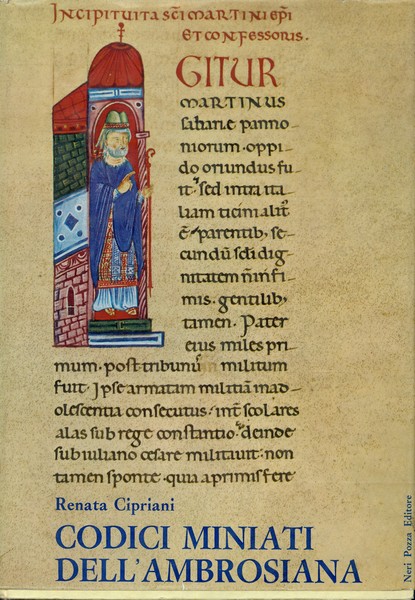 INCIPIT VITA SCI MARTINI EPI
ET CONFESSORIS.
GITUR
MARTINUS
sabarie panno-
niorum. oppi-
do oriundus fu-
it. sed intra ita-
liam ticini
parentib; se-
cundū scdi dig-
nitatem
mis. gentilib;
tamen. Pater
eius miles pri-
mum. post tribunus militum
fuit. Ipse armatam militiā inad-
olescentia consecutus. scolares
alas sub rege constantio. deinde
sub iuliano cesare militauit. non
tamen sponte. quia aprimis fere
Renata Cipriani
CODICI MINIATI
DELL'AMBROSIANA
Neri Pozza Editore